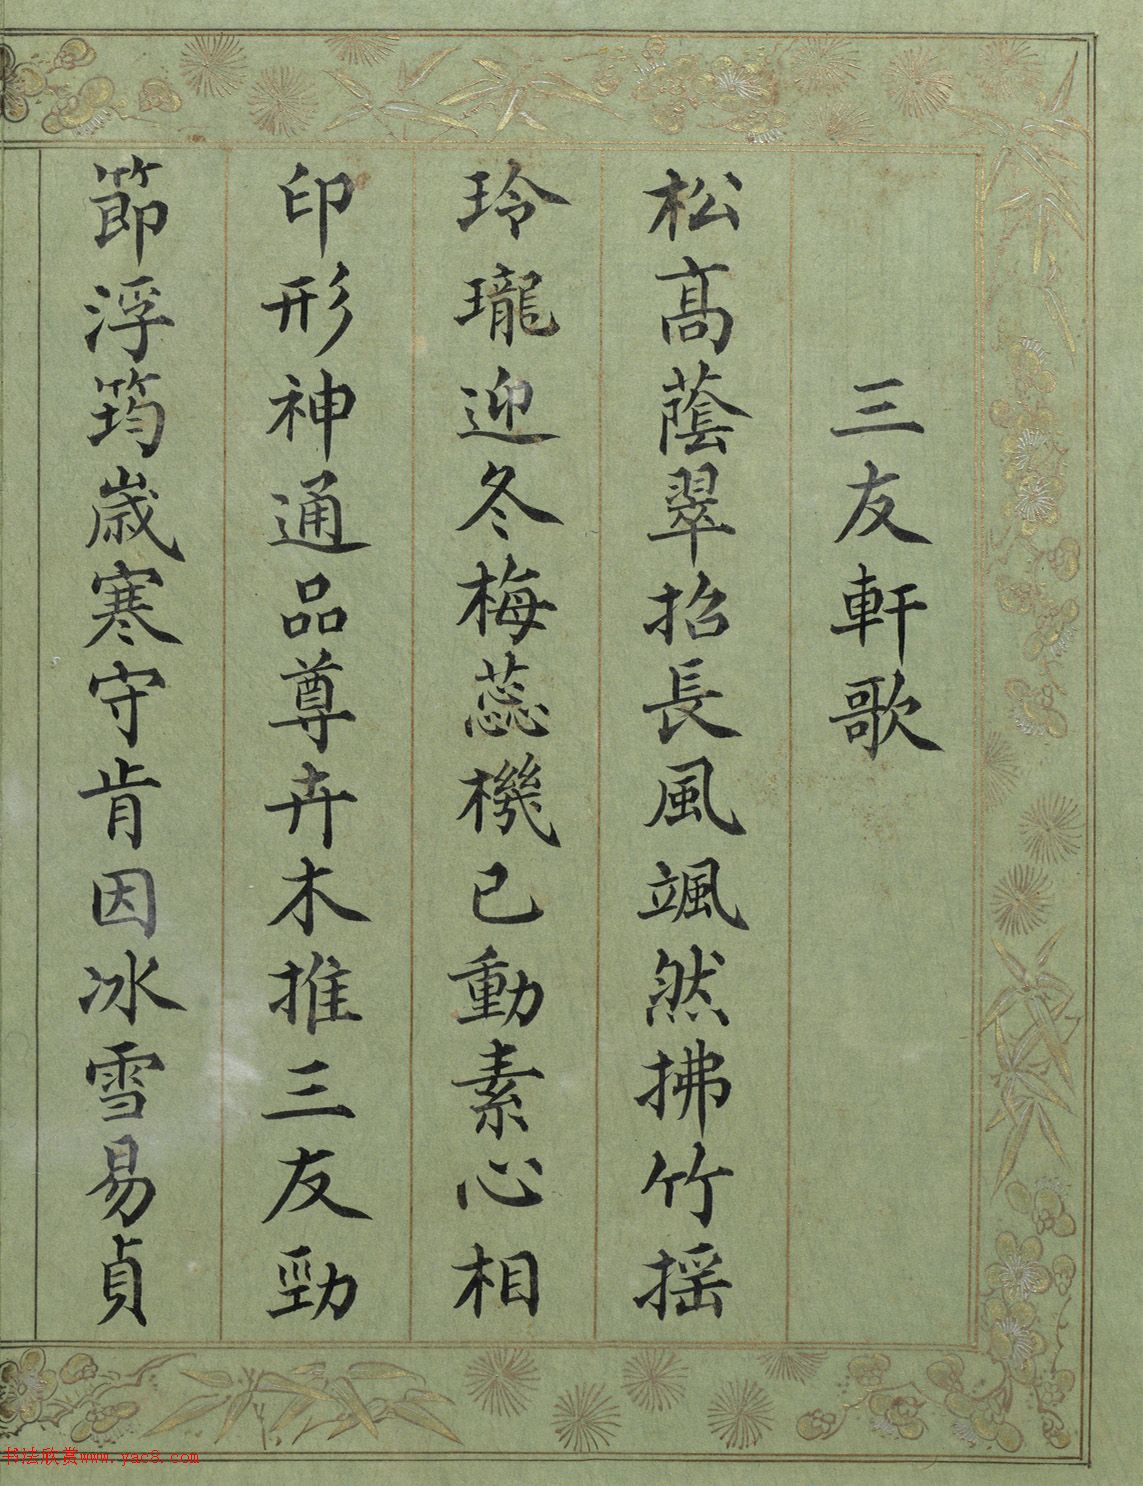 三友軒歌
松髙蔭翠招長風颯然拂竹摇
玲瓏迎冬梅蕊機已動素心相
印形神通品尊卉木推三友勁
節浮筠歲寒守肯因冰雪易貞
书法欣赏www.yac8.com